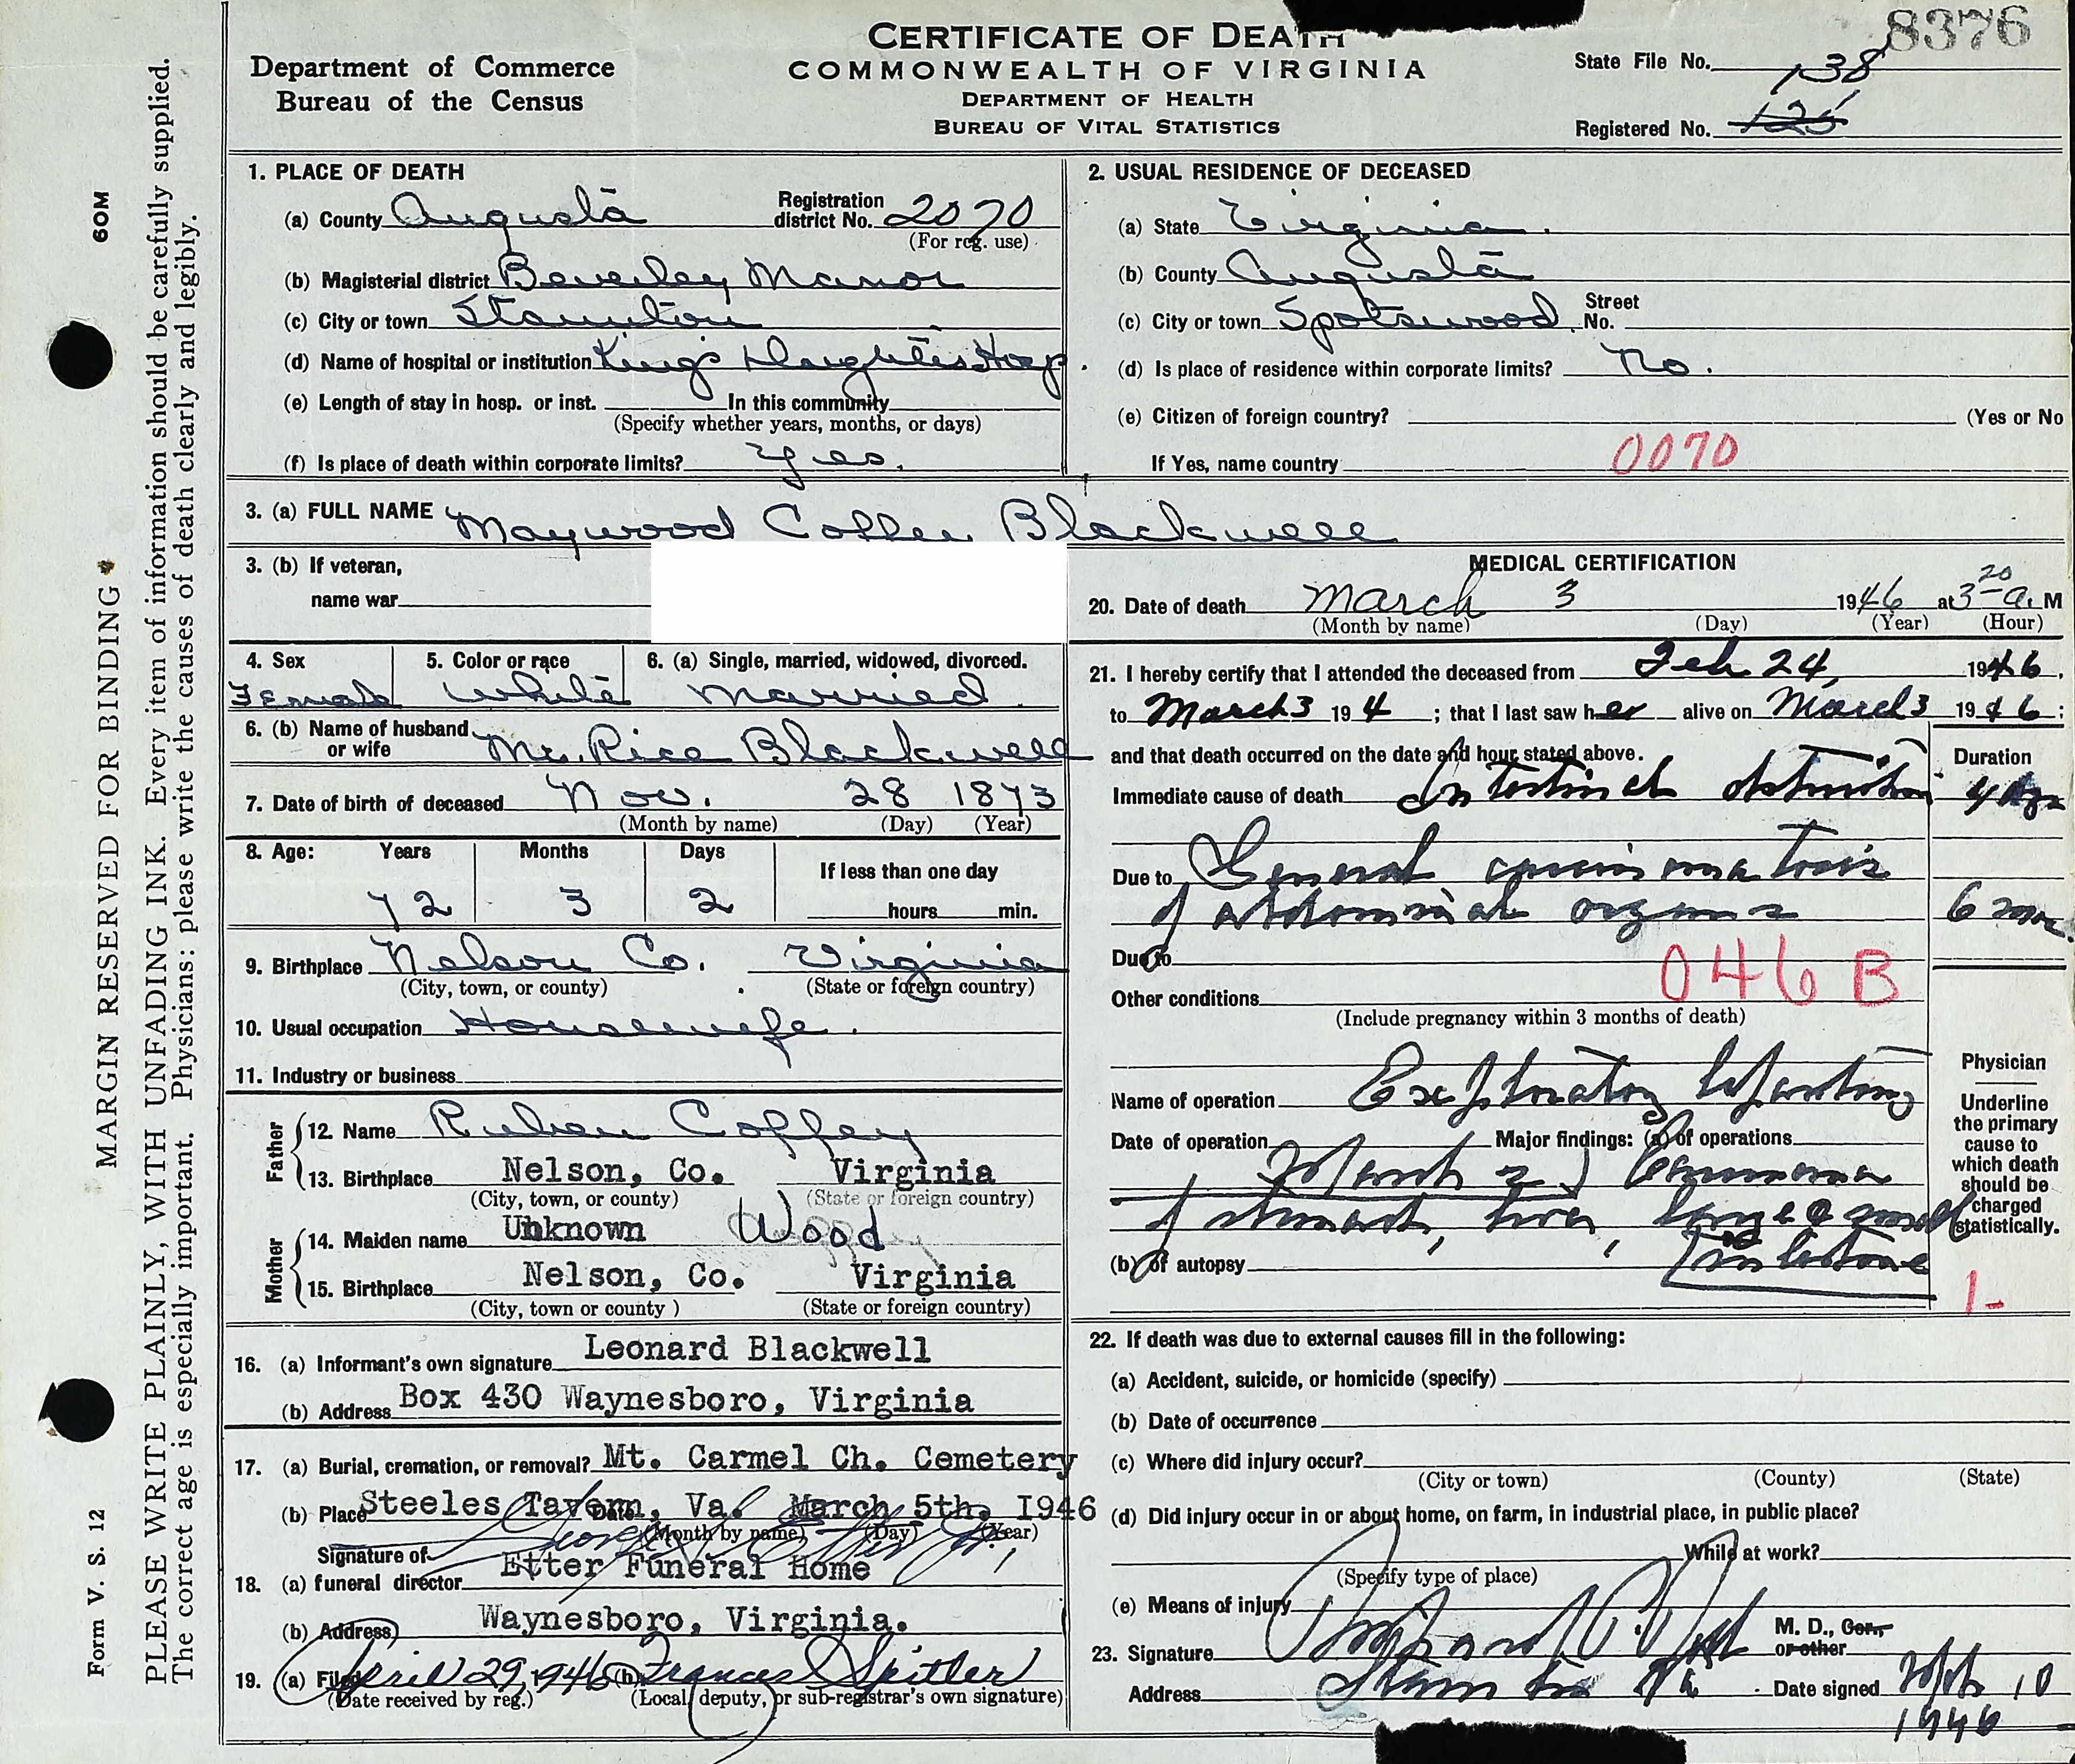 8376
CERTIFICATE OF DEATH
COMMONWEALTH OF VIRGINIA
DEPARTMENT OF HEALTH
BUREAU OF VITAL STATISTICS
Department of Commerce
Bureau of the Census
State File No. 138
Registered No. 125
MARGIN RESERVED FOR BINDING
60M
Form V. S. 12
PLEASE WRITE PLAINLY, WITH UNFADING INK. Every item of information should be carefully supplied.
The correct age is especially important. Physicians: please write the causes of death clearly and legibly.
1. PLACE OF DEATH
(a) County Augusta Registration district No. 2070
(For reg. use)
(b) Magisterial district Beverley Manor
(c) City or town Staunton
(d) Name of hospital or institution King's Daughters Hosp.
(e) Length of stay in hosp. or inst. In this community
(Specify whether years, months, or days)
(f) Is place of death within corporate limits? yes.
2. USUAL RESIDENCE OF DECEASED
(a) State Virginia.
(b) County Augusta
(c) City or town Spotswood Street No.
(d) Is place of residence within corporate limits? No.
(e) Citizen of foreign country? (Yes or No
If Yes, name country
0070
3. (a) FULL NAME Maywood Coffee Blackwell
3. (b) If veteran,
name war
4. Sex Female
5. Color or race White
6. (a) Single, married, widowed, divorced. Married
6. (b) Name of husband or wife Mr. Rice Blackwell
7. Date of birth of deceased Nov. 28 1873
(Month by name) (Day) (Year)
8. Age: Years Months Days If less than one day
72 3 2 hours min.
9. Birthplace Nelson Co. Virginia
(City, town, or county) (State or foreign country)
10. Usual occupation Housewife.
11. Industry or business
Father
12. Name Ruben Coffey
13. Birthplace Nelson, Co. Virginia
(City, town, or county) (State or foreign country)
Mother
14. Maiden name Unknown Wood
15. Birthplace Nelson, Co. Virginia
(City, town or county ) (State or foreign country)
16. (a) Informant's own signature Leonard Blackwell
(b) Address Box 430 Waynesboro, Virginia
17. (a) Burial, cremation, or removal? Mt. Carmel Ch. Cemetery
(b) Place Steeles Tavern, Va. Date March 5th, 1946
(Month by name) (Day) (Year)
Signature of
18. (a) funeral director Etter Funeral Home
(b) Address Waynesboro, Virginia.
19. (a) Filed April 29, 1946 (b) Frances S Spitler
(Date received by reg.) (Local, deputy, or sub-registrar's own signature)
MEDICAL CERTIFICATION
20. Date of death March 3 1946 at 3 20 a. M
(Month by name) (Day) (Year) (Hour)
21. I hereby certify that I attended the deceased from Feb 24, 1946,
to March 3 194 ; that I last saw her alive on March 3 1946;
and that death occurred on the date and hour stated above. Duration
Immediate cause of death Intestinal obstruction 4 dys
Due to General carcinomatosis
of abdominal organs 6 mos.
Due to
046 B
Other conditions
(Include pregnancy within 3 months of death)
Name of operation Exploratory laparotomy
Date of operation Major findings: (a) of operations
March 2 Carcinoma
of stomach, liver, large & small
intestine
(b) of autopsy
Physician
Underline
the primary
cause to
which death
should be
charged
statistically.
1-
22. If death was due to external causes fill in the following:
(a) Accident, suicide, or homicide (specify)
(b) Date of occurrence
(c) Where did injury occur?
(City or town) (County) (State)
(d) Did injury occur in or about home, on farm, in industrial place, in public place?
While at work?
(Specify type of place)
(e) Means of injury
23. Signature M. D., Cor., or other
Address Staunton Va. Date signed Mch 10
1946